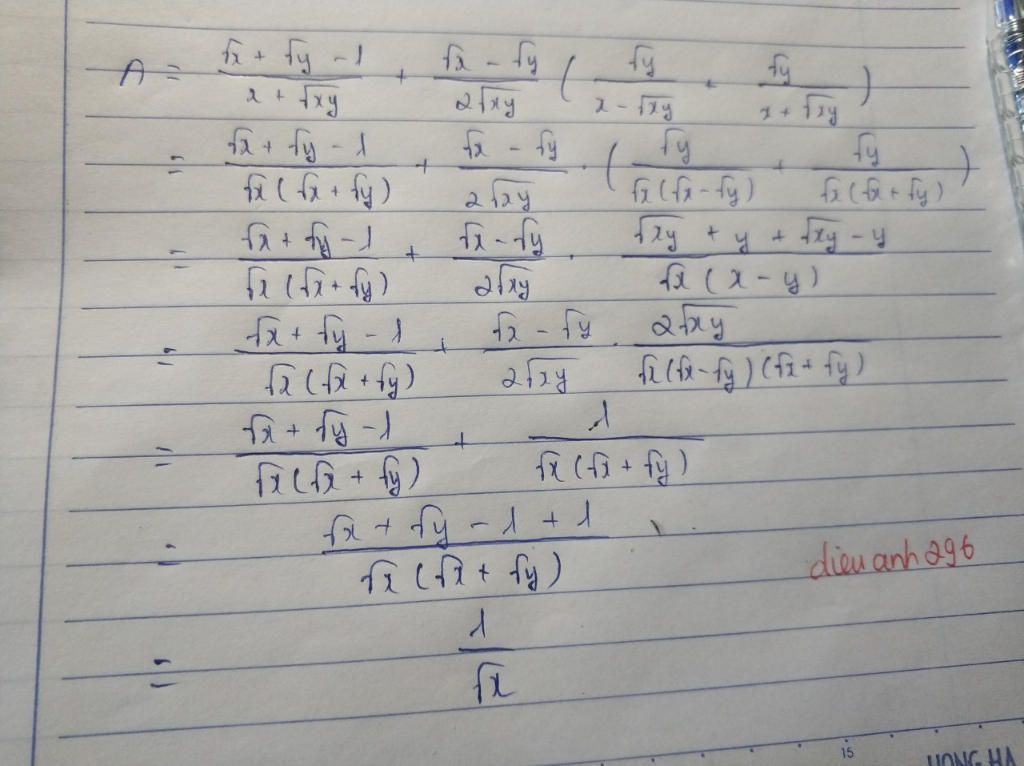 A = (√x + √y - 1)/(x + √xy) + (√x - √y)/(2√xy) (√y/(x - √xy) + √y/(x + √xy))
= (√x + √y - 1)/(√x(√x + √y)) + (√x - √y)/(2√xy) . (√y/(√x(√x - √y)) + √y/(√x(√x + √y)))
= (√x + √y - 1)/(√x(√x + √y)) + (√x - √y)/(2√xy) . (√xy + y + √xy - y)/(√x(x - y))
= (√x + √y - 1)/(√x(√x + √y)) + (√x - √y)/(2√xy) . 2√xy/(√x(√x - √y)(√x + √y))
= (√x + √y - 1)/(√x(√x + √y)) + 1/(√x(√x + √y))
= (√x + √y - 1 + 1)/(√x(√x + √y))
dieuanh296
= 1/√x
15
HONG HA